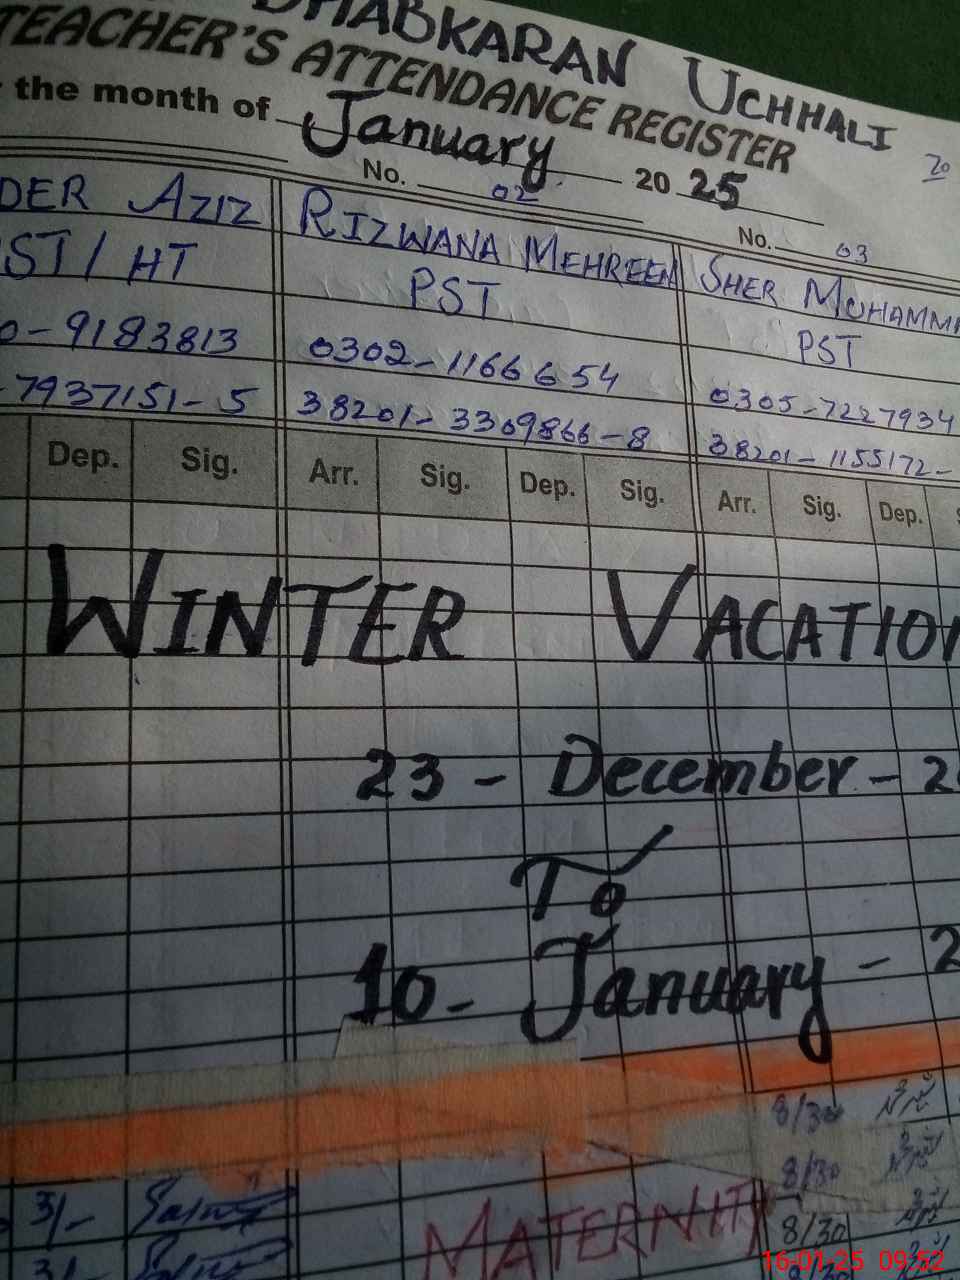 DHABKARAN UCHHALI
TEACHER'S ATTENDANCE REGISTER
the month of January 2025
20
No. 02 No. 03
DER AZIZ RIZWANA MEHREEN SHER MUHAMM
ST/HT PST PST
0-9183813 0302-1166654 0305-7227934
-7937151-5 38201-3309866-8 38201-1155172-
Dep. Sig. Arr. Sig. Dep. Sig. Arr. Sig. Dep. S
WINTER VACATION
23 - December - 2
To
10 - January - 2
8/30
8/30
3/- 8/30
MATERNITY
3/-
16-01-25 09:52